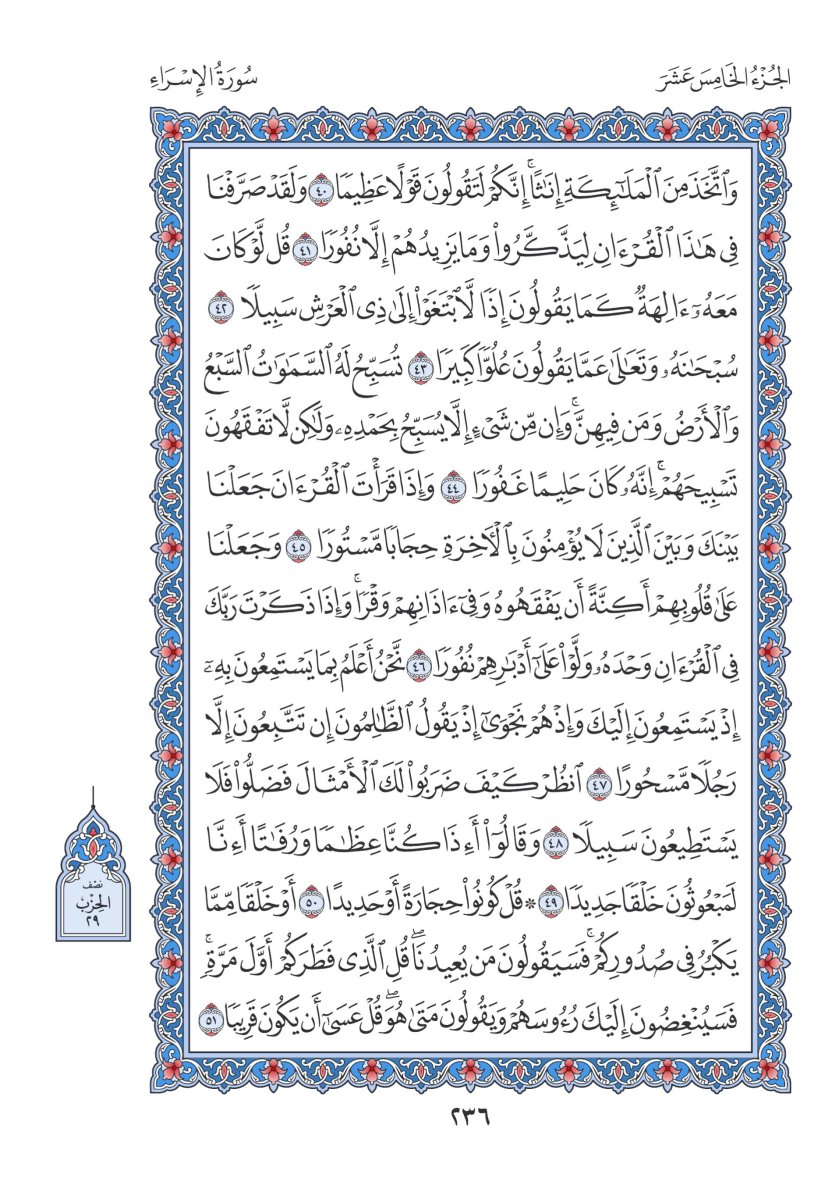 الجُزْءُ الخَامِسَ عَشَرَ
سُورَةُ الإِسْرَاءِ
وَٱتَّخَذَ مِنَ ٱلْمَلَٰٓئِكَةِ إِنَٰثًاۚ إِنَّكُمْ لَتَقُولُونَ قَوْلًا عَظِيمًا ٤٠ وَلَقَدْ صَرَّفْنَا
فِى هَٰذَا ٱلْقُرْءَانِ لِيَذَّكَّرُوا۟ وَمَا يَزِيدُهُمْ إِلَّا نُفُورًا ٤١ قُل لَّوْ كَانَ
مَعَهُۥٓ ءَالِهَةٌ كَمَا يَقُولُونَ إِذًا لَّٱبْتَغَوْا۟ إِلَىٰ ذِى ٱلْعَرْشِ سَبِيلًا ٤٢
سُبْحَٰنَهُۥ وَتَعَٰلَىٰ عَمَّا يَقُولُونَ عُلُوًّا كَبِيرًا ٤٣ تُسَبِّحُ لَهُ ٱلسَّمَٰوَٰتُ ٱلسَّبْعُ
وَٱلْأَرْضُ وَمَن فِيهِنَّۚ وَإِن مِّن شَىْءٍ إِلَّا يُسَبِّحُ بِحَمْدِهِۦ وَلَٰكِن لَّا تَفْقَهُونَ
تَسْبِيحَهُمْۚ إِنَّهُۥ كَانَ حَلِيمًا غَفُورًا ٤٤ وَإِذَا قَرَأْتَ ٱلْقُرْءَانَ جَعَلْنَا
بَيْنَكَ وَبَيْنَ ٱلَّذِينَ لَا يُؤْمِنُونَ بِٱلْءَاخِرَةِ حِجَابًا مَّسْتُورًا ٤٥ وَجَعَلْنَا
عَلَىٰ قُلُوبِهِمْ أَكِنَّةً أَن يَفْقَهُوهُ وَفِىٓ ءَاذَانِهِمْ وَقْرًاۚ وَإِذَا ذَكَرْتَ رَبَّكَ
فِى ٱلْقُرْءَانِ وَحْدَهُۥ وَلَّوْا۟ عَلَىٰٓ أَدْبَٰرِهِمْ نُفُورًا ٤٦ نَّحْنُ أَعْلَمُ بِمَا يَسْتَمِعُونَ بِهِۦٓ
إِذْ يَسْتَمِعُونَ إِلَيْكَ وَإِذْ هُمْ نَجْوَىٰٓ إِذْ يَقُولُ ٱلظَّٰلِمُونَ إِن تَتَّبِعُونَ إِلَّا
رَجُلًا مَّسْحُورًا ٤٧ ٱنظُرْ كَيْفَ ضَرَبُوا۟ لَكَ ٱلْأَمْثَالَ فَضَلُّوا۟ فَلَا
يَسْتَطِيعُونَ سَبِيلًا ٤٨ وَقَالُوٓا۟ أَءِذَا كُنَّا عِظَٰمًا وَرُفَٰتًا أَءِنَّا
لَمَبْعُوثُونَ خَلْقًا جَدِيدًا ٤٩ ۞ قُلْ كُونُوا۟ حِجَارَةً أَوْ حَدِيدًا ٥٠ أَوْ خَلْقًا مِّمَّا
يَكْبُرُ فِى صُدُورِكُمْۚ فَسَيَقُولُونَ مَن يُعِيدُنَاۖ قُلِ ٱلَّذِى فَطَرَكُمْ أَوَّلَ مَرَّةٍۚ
فَسَيُنْغِضُونَ إِلَيْكَ رُءُوسَهُمْ وَيَقُولُونَ مَتَىٰ هُوَۖ قُلْ عَسَىٰٓ أَن يَكُونَ قَرِيبًا ٥١
نصْف
الحِزْبِ
٢٩
٢٣٦